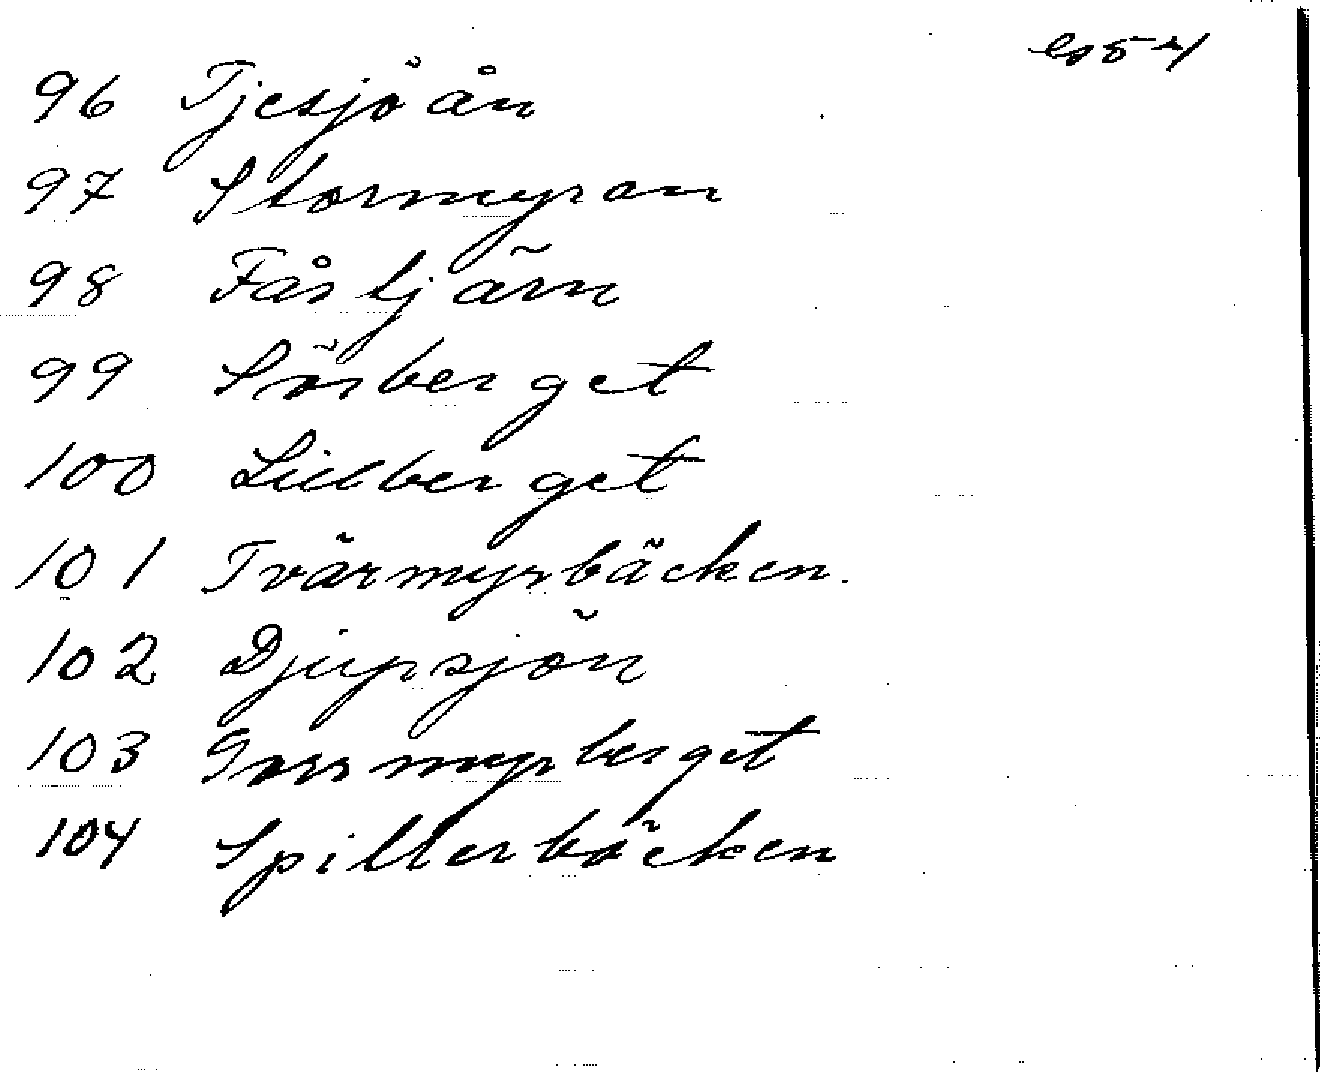 96 Tjesjöån
97 Stormyran
98 Fåstjärn
99 Sörberget
100 Lillberget
101 Tvärmyrbäcken.
102 Djupsjön
103 Gossmyrberget
104 Spillerbäcken